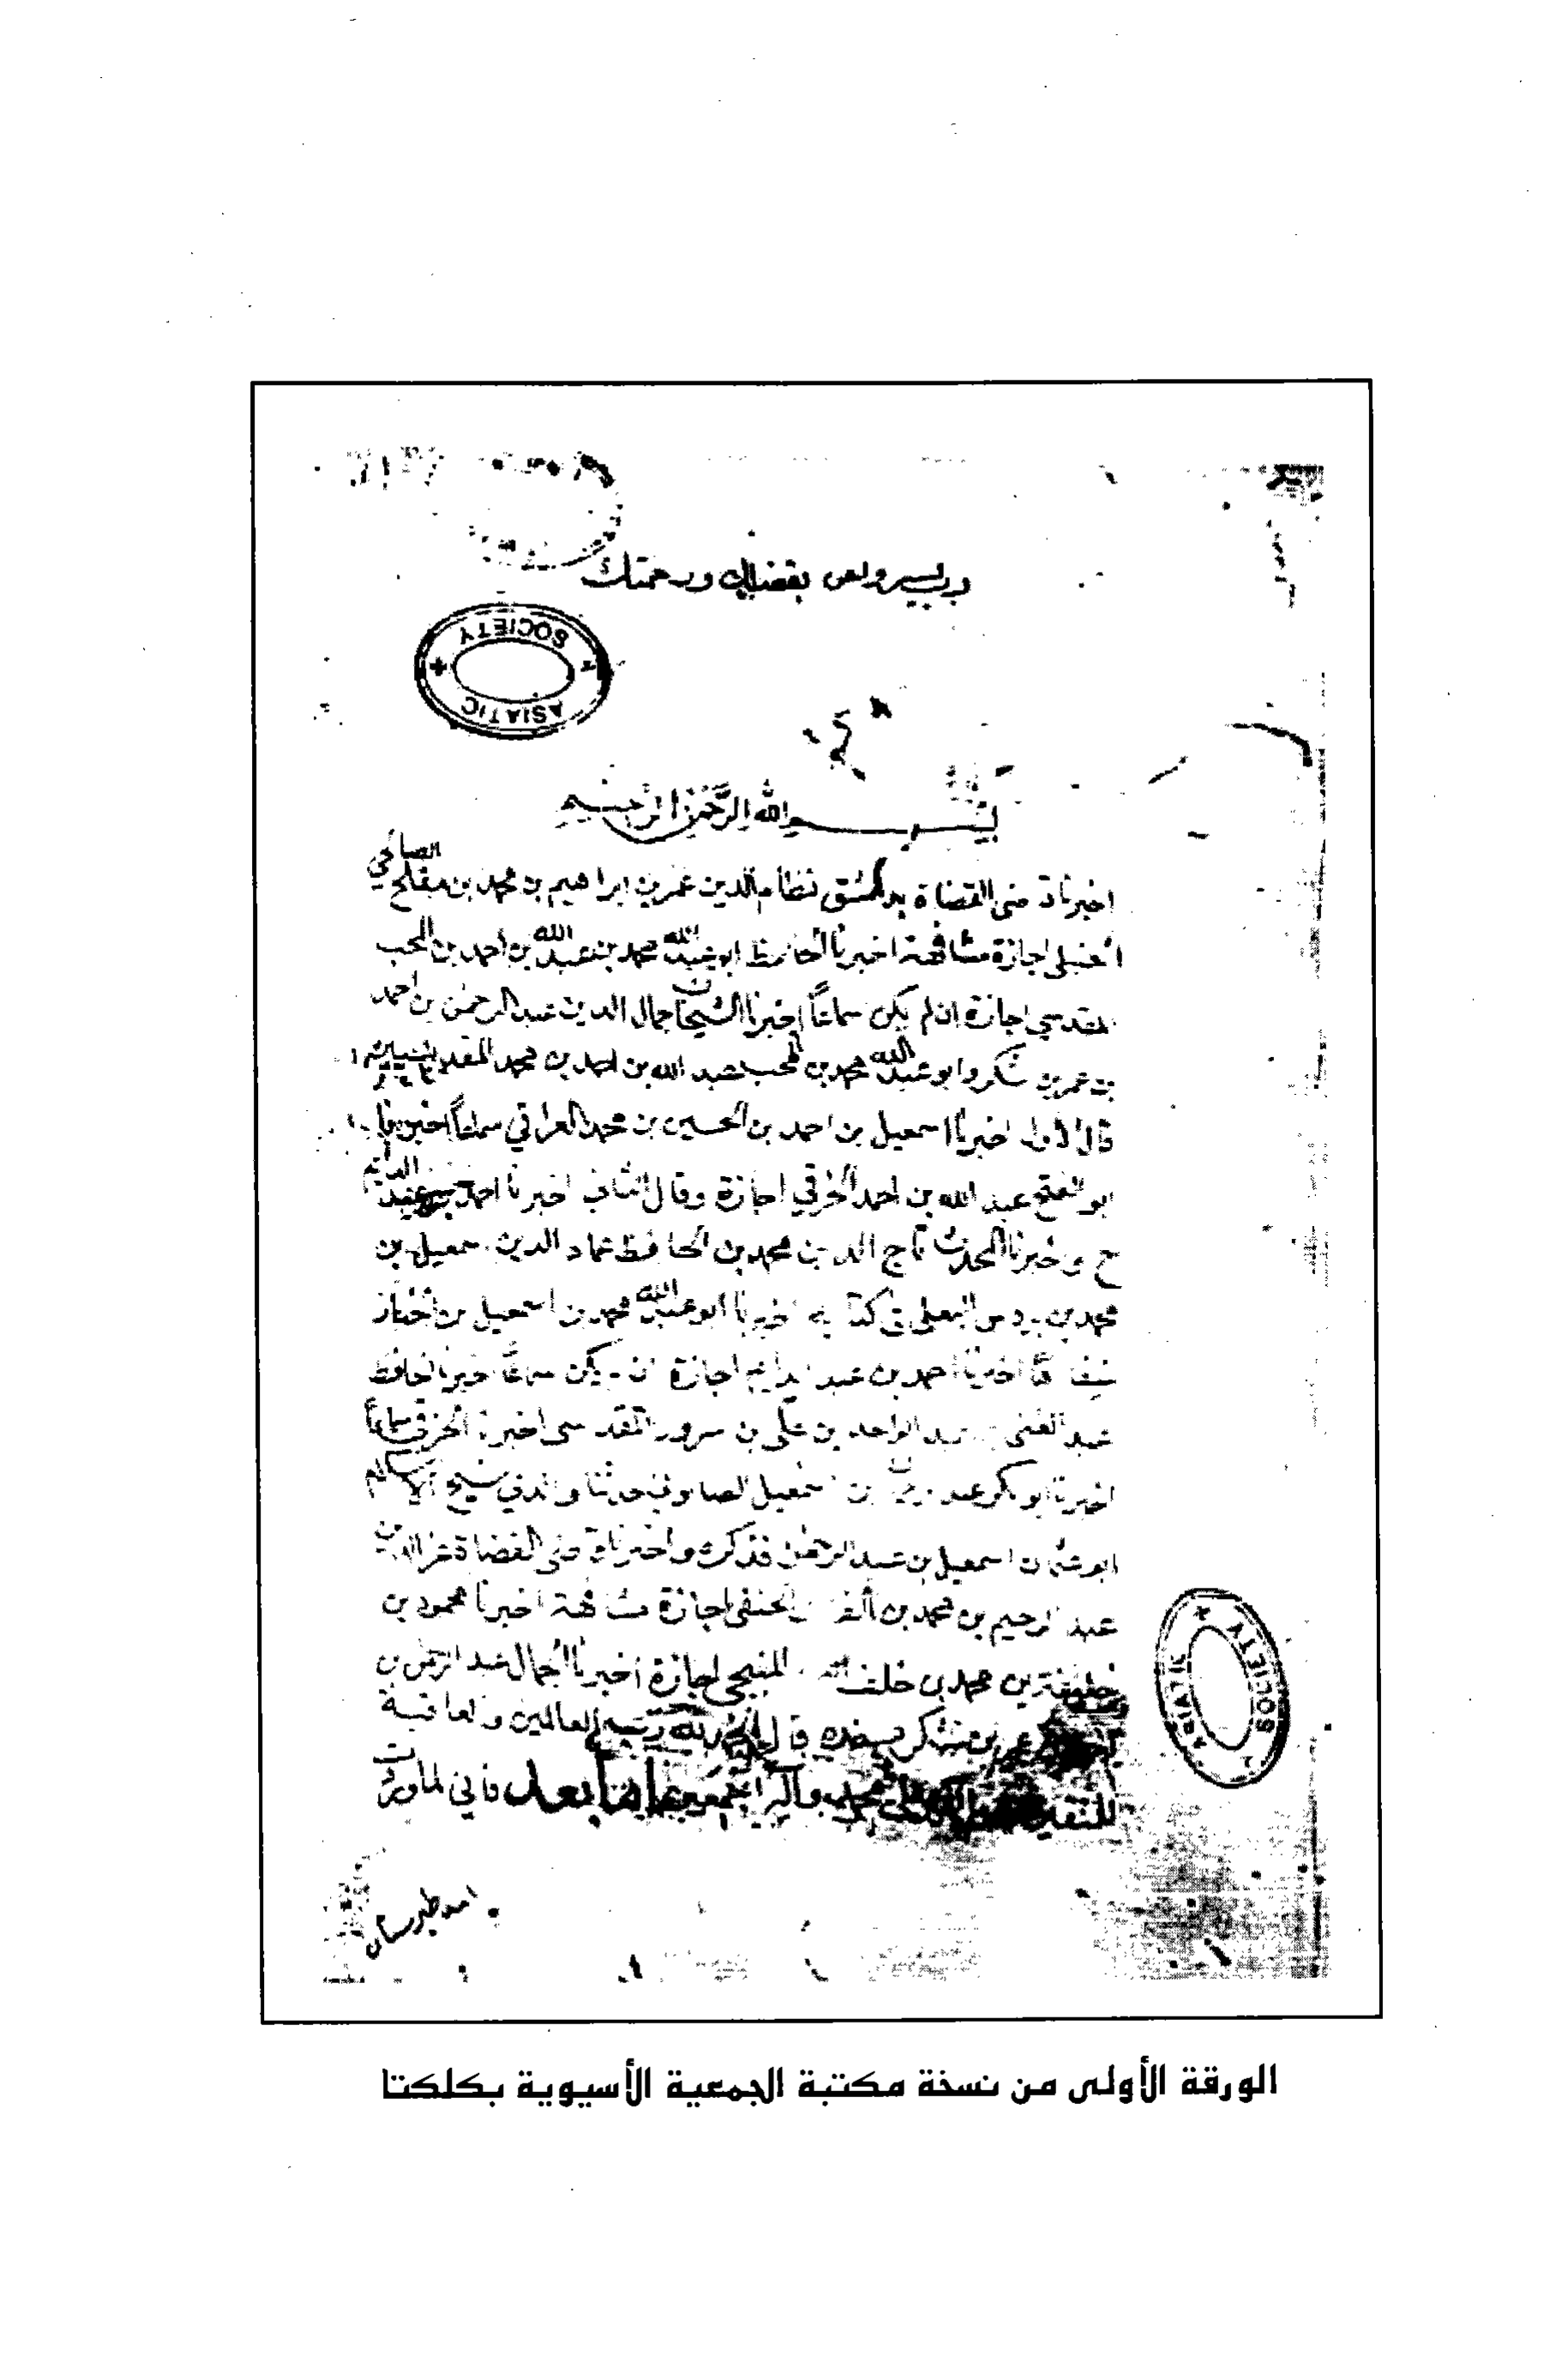 رب يسر واعن بفضلك ورحمتك
SOCIETY
ASIATIC
بسم الله الرحمن الرحيم
اخبرنا قاضى القضاة بدمشق نظام الدين عمر بن ابراهيم بن محمد بن مفلح الصالحي
الحنبلى اجازة مشافهة اخبرنا الحافظ ابو عبد الله محمد بن عبد الله بن احمد بن المحب
المقدسي اجازة ان لم يكن سماعًا اخبرنا الشيخان جمال الدين عبد الرحمن بن احمد
بن عمر بن شكر وابو عبد الله محمد بن المحب عبد الله بن احمد بن محمد المقدسيان
قال الاول اخبرنا اسمعيل بن احمد بن الحسين بن محمد العراقي سماعًا اخبرنا
ابو الفتح عبد الله بن احمد الخرقي اجازة وقال الثاني اخبرنا احمد بن عبد الدايم
ح واخبرنا المحدث تاج الدين محمد بن الحافظ عماد الدين اسمعيل بن
محمد بن بردس البعلي في كتابه اخبرنا ابو عبد الله محمد بن اسمعيل بن الخباز
شفاهًا اخبرنا احمد بن عبد الدايم اجازة ان لم يكن سماعًا اخبرنا الحافظ
عبد الغنى بن عبد الواحد بن على بن سرور المقدسى اخبرنا الخرقي سماعًا
اخبرنا ابو بكر عبد الرحمن بن اسمعيل الصابوني حدثنا والدي شيخ الاسلام
ابو عثمان اسمعيل بن عبد الرحمن فذكره واخبرنا قاضى القضاة عز الدين
عبد الرحيم بن محمد بن الفرات الحنفى اجازة مشافهة اخبرنا محمود بن
خليفة بن محمد بن خلف المنبجي اجازة اخبرنا الجمال عبد الرحمن بن
احمد بن عمر بن شكر بسنده قال الحمد لله رب العالمين والعاقبة
للمتقين محمد وآله اجمعين اما بعد فاني لما وردت
SOCIETY
ASIATIC
الورقة الأولى من نسخة مكتبة الجمعية الأسيوية بكلكتا